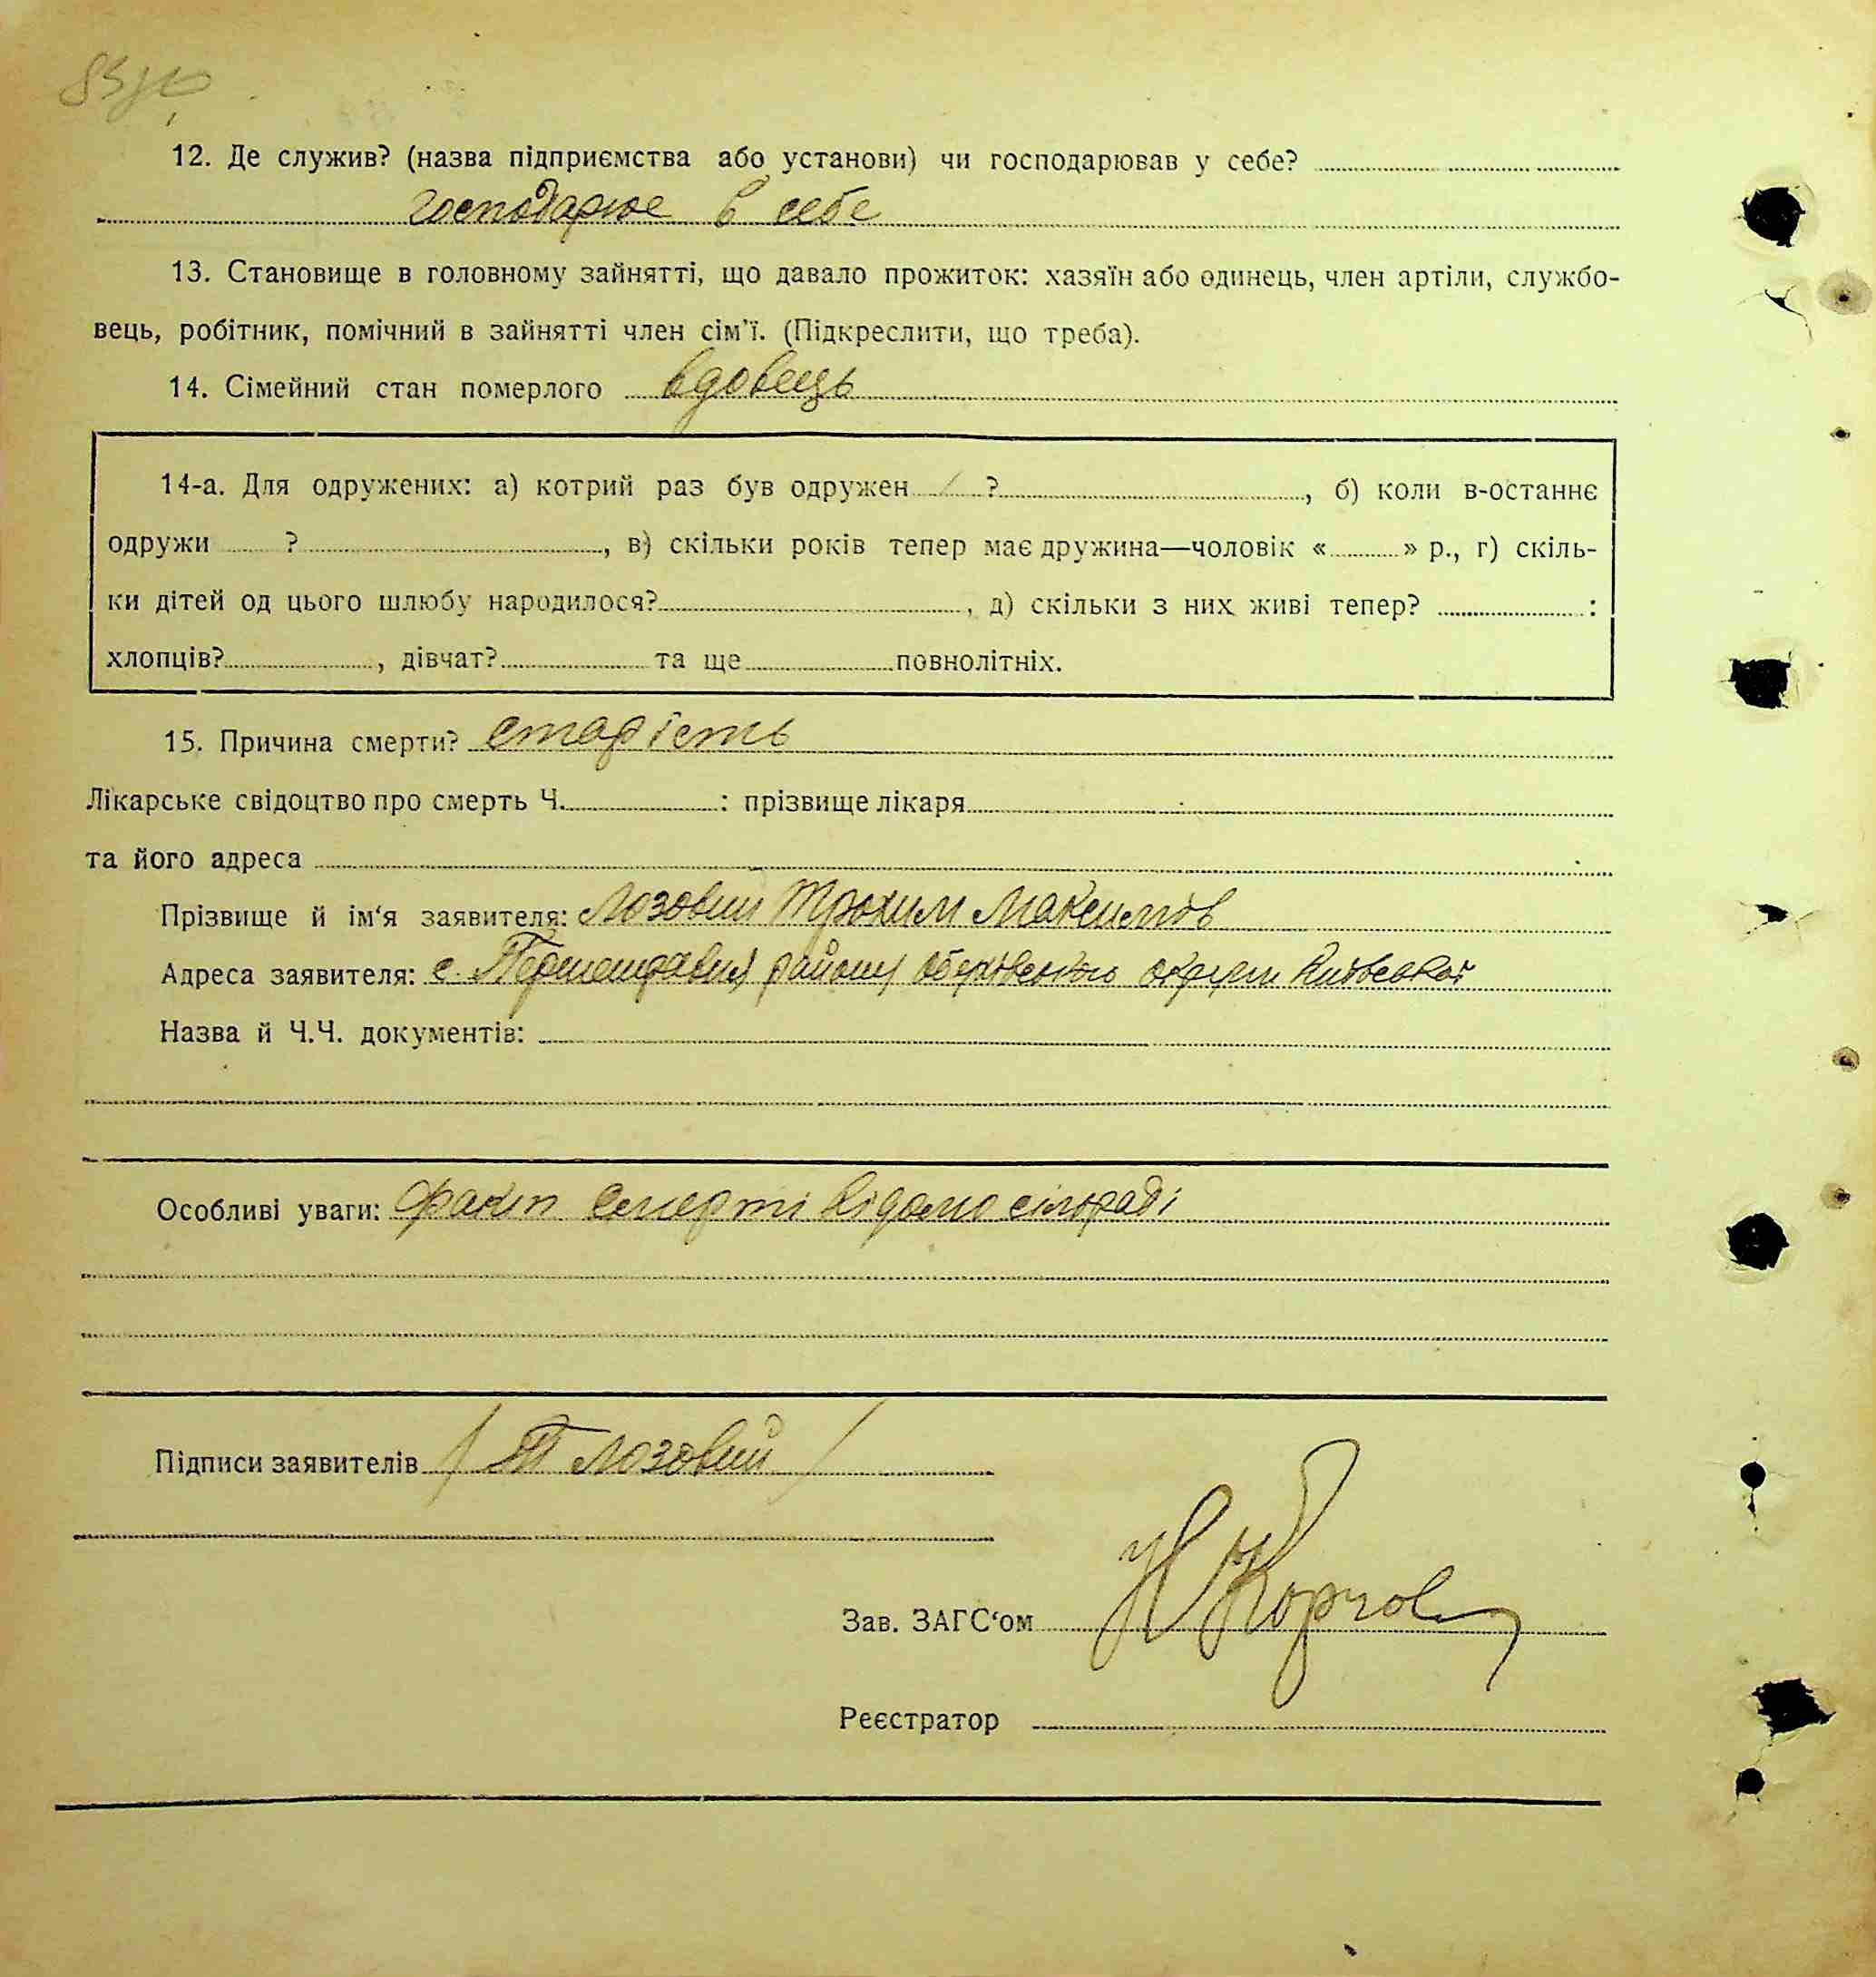 12. Де служив? (назва підприємства або установи) чи господарював у себе?
господарює в себе
13. Становище в головному зайнятті, що давало прожиток: хазяїн або одинець, член артіли, службо-
вець, робітник, помічний в зайнятті член сім'ї. (Підкреслити, що треба).
14. Сімейний стан померлого вдовець
14-а. Для одружених: а) котрий раз був одружен ?, б) коли в-останнє
одружи ?, в) скільки років тепер має дружина—чоловік « » р., г) скіль-
ки дітей од цього шлюбу народилося?, д) скільки з них живі тепер? :
хлопців?, дівчат? та ще повнолітніх.
15. Причина смерти? старість
Лікарське свідоцтво про смерть Ч. : прізвище лікаря
та його адреса
Прізвище й ім'я заявителя: Лозовий Трохим Максимов
Адреса заявителя: с. району округи Київської
Назва й Ч.Ч. документів:
Особливі уваги: Факт смерті відомо сільраді
Підписи заявителів / Т Лозовий /
Зав. ЗАГС'ом
Реєстратор